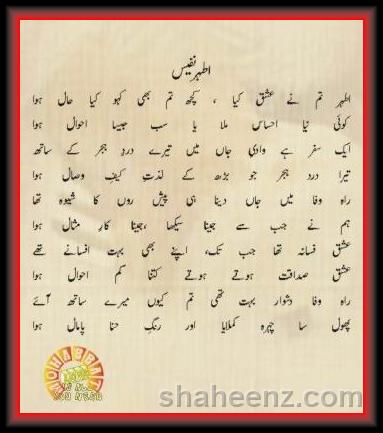 اطہر نفیس
اطہر تم نے عشق کیا ، کچھ تم بھی کہو کیا حال ہوا
کوئی نیا احساس ملا یا سب جیسا احوال ہوا
ایک سفر ہے وادیِ جاں میں تیرے دردِ ہجر کے ساتھ
تیرا دردِ ہجر جو بڑھ کے لذتِ کیفِ وصال ہوا
راہ وفا میں جاں دینا ہی پیش روں کا شیوہ تھا
ہم نے جب سے جینا سیکھا ،جینا کارِ مثال ہوا
عشق فسانہ تھا جب تک، اپنے بھی بہت افسانے تھے
عشق صداقت ہوتے ہوتے کتنا کم احوال ہوا
راہ وفا دشوار بہت تھی تم کیوں میرے ساتھ آئے
پھول سا چہرہ کملایا اور رنگِ حنا پامال ہوا
MOHABBAT
shaheenz.com